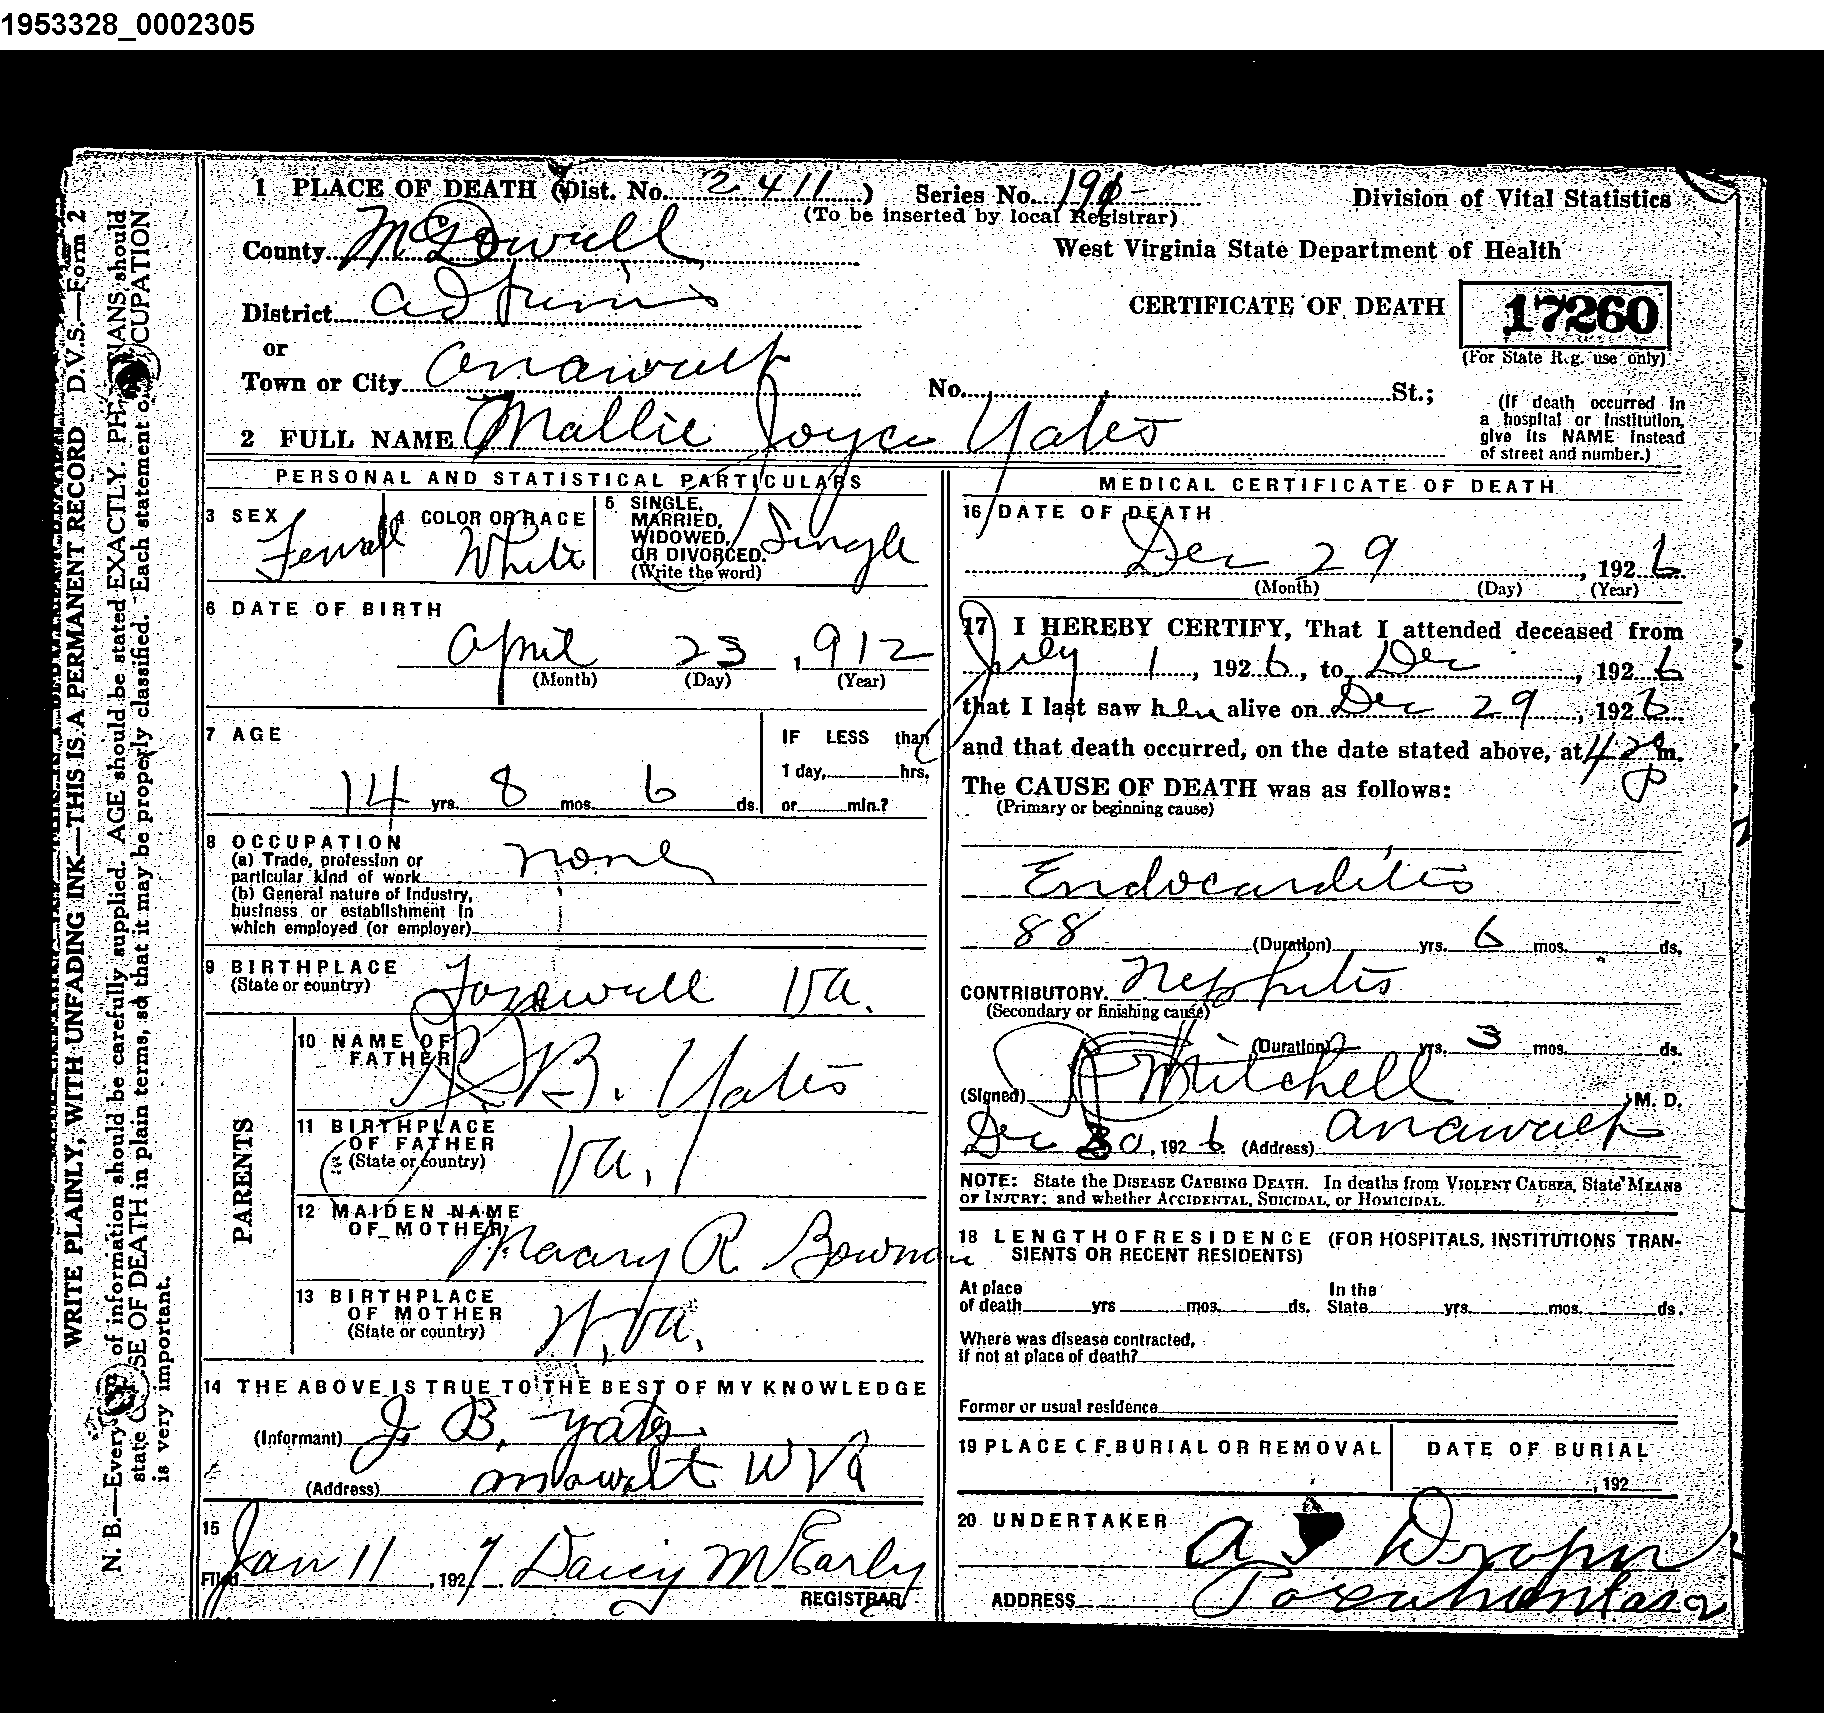 1953328_0002305
WRITE PLAINLY, WITH UNFADING INK—THIS IS A PERMANENT RECORD D.V.S.—Form 2
N. B.—Every of information should be carefully supplied. AGE should be stated EXACTLY. should
state OF DEATH in plain terms, so that it may be properly classified. Each statement
is very important.
1 PLACE OF DEATH (Dist. No. 2411) Series No. 196-
(To be inserted by local Registrar)
Division of Vital Statistics
County McDowell
West Virginia State Department of Health
District
CERTIFICATE OF DEATH 17260
or
(For State Reg. use only)
Town or City Anawalt
No. St.;
(If death occurred in
a hospital or institution,
give its NAME instead
of street and number.)
2 FULL NAME Mallie Joyce Yates
PERSONAL AND STATISTICAL PARTICULARS
3 SEX Femal
4 COLOR OR RACE White
5 SINGLE,
MARRIED,
WIDOWED,
OR DIVORCED.
(Write the word)
Single
6 DATE OF BIRTH
April 23, 912
(Month) (Day) (Year)
7 AGE
14 yrs. 8 mos. 6 ds.
IF LESS than
1 day, hrs.
or min.?
8 OCCUPATION
(a) Trade, profession or
particular kind of work none
(b) General nature of industry,
business or establishment in
which employed (or employer)
9 BIRTHPLACE
(State or country) Tazewell Va.
PARENTS
10 NAME OF
FATHER B. Yates
11 BIRTHPLACE
OF FATHER
(State or country) Va.
12 MAIDEN NAME
OF MOTHER Maary R Bowman
13 BIRTHPLACE
OF MOTHER
(State or country) W. Va.
14 THE ABOVE IS TRUE TO THE BEST OF MY KNOWLEDGE
(Informant) J. B. Yates
(Address) Anawalt W Va
15
Filed Jan 11, 1927 Daisy McEarly
REGISTRAR
MEDICAL CERTIFICATE OF DEATH
16 DATE OF DEATH
Dec 29, 1926
(Month) (Day) (Year)
17 I HEREBY CERTIFY, That I attended deceased from
July 1, 1926, to Dec, 1926
that I last saw her alive on Dec 29, 1926
and that death occurred, on the date stated above, at 420 m.
P
The CAUSE OF DEATH was as follows:
(Primary or beginning cause)
Endocarditis
88 (Duration) yrs. 6 mos. ds.
CONTRIBUTORY. Nephitis
(Secondary or finishing cause)
(Duration) yrs. 3 mos. ds.
(Signed) Mitchell M. D.
Dec 30, 1926 (Address) Anawalt
NOTE: State the DISEASE CAUSING DEATH. In deaths from VIOLENT CAUSES, State MEANS
OF INJURY; and whether ACCIDENTAL, SUICIDAL, or HOMICIDAL.
18 LENGTH OF RESIDENCE (FOR HOSPITALS, INSTITUTIONS TRAN-
SIENTS OR RECENT RESIDENTS)
At place
of death yrs mos. ds.
In the
State yrs. mos. ds.
Where was disease contracted,
if not at place of death?
Former or usual residence
19 PLACE OF BURIAL OR REMOVAL
DATE OF BURIAL
, 192
20 UNDERTAKER A J Draper
ADDRESS Pocahontas